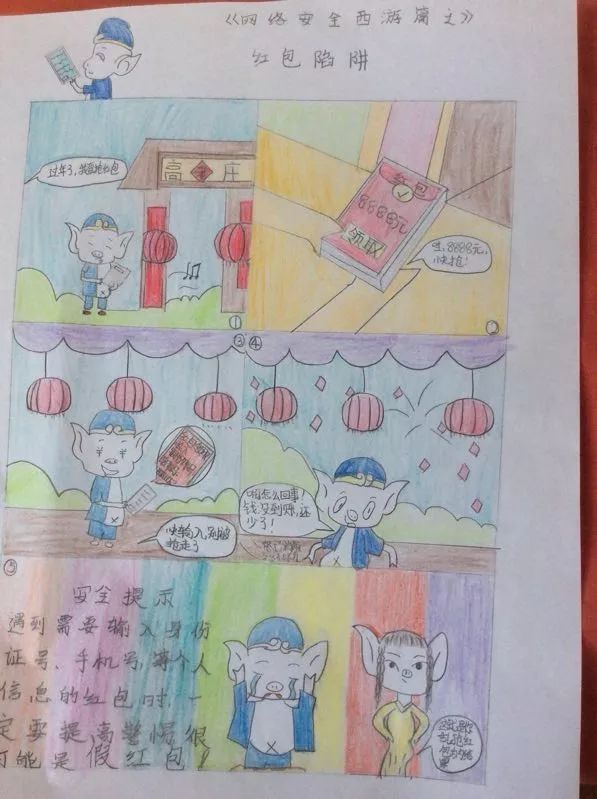 《网络安全西游篇之》
红包陷阱
过年了，我要抢红包
高 老 庄
①
红包
8888元
领取
哇，8888元，
快抢！
②
③
快输入，别被
抢走了
④
咱怎么回事
钱没到账，还
少了！
⑤
安全提示
遇到需要输入身份
证号、手机号，等个人
信息的红包时，一
定要提高警惕很
可能是假红包！
这就是你
乱抢红
包的结
果